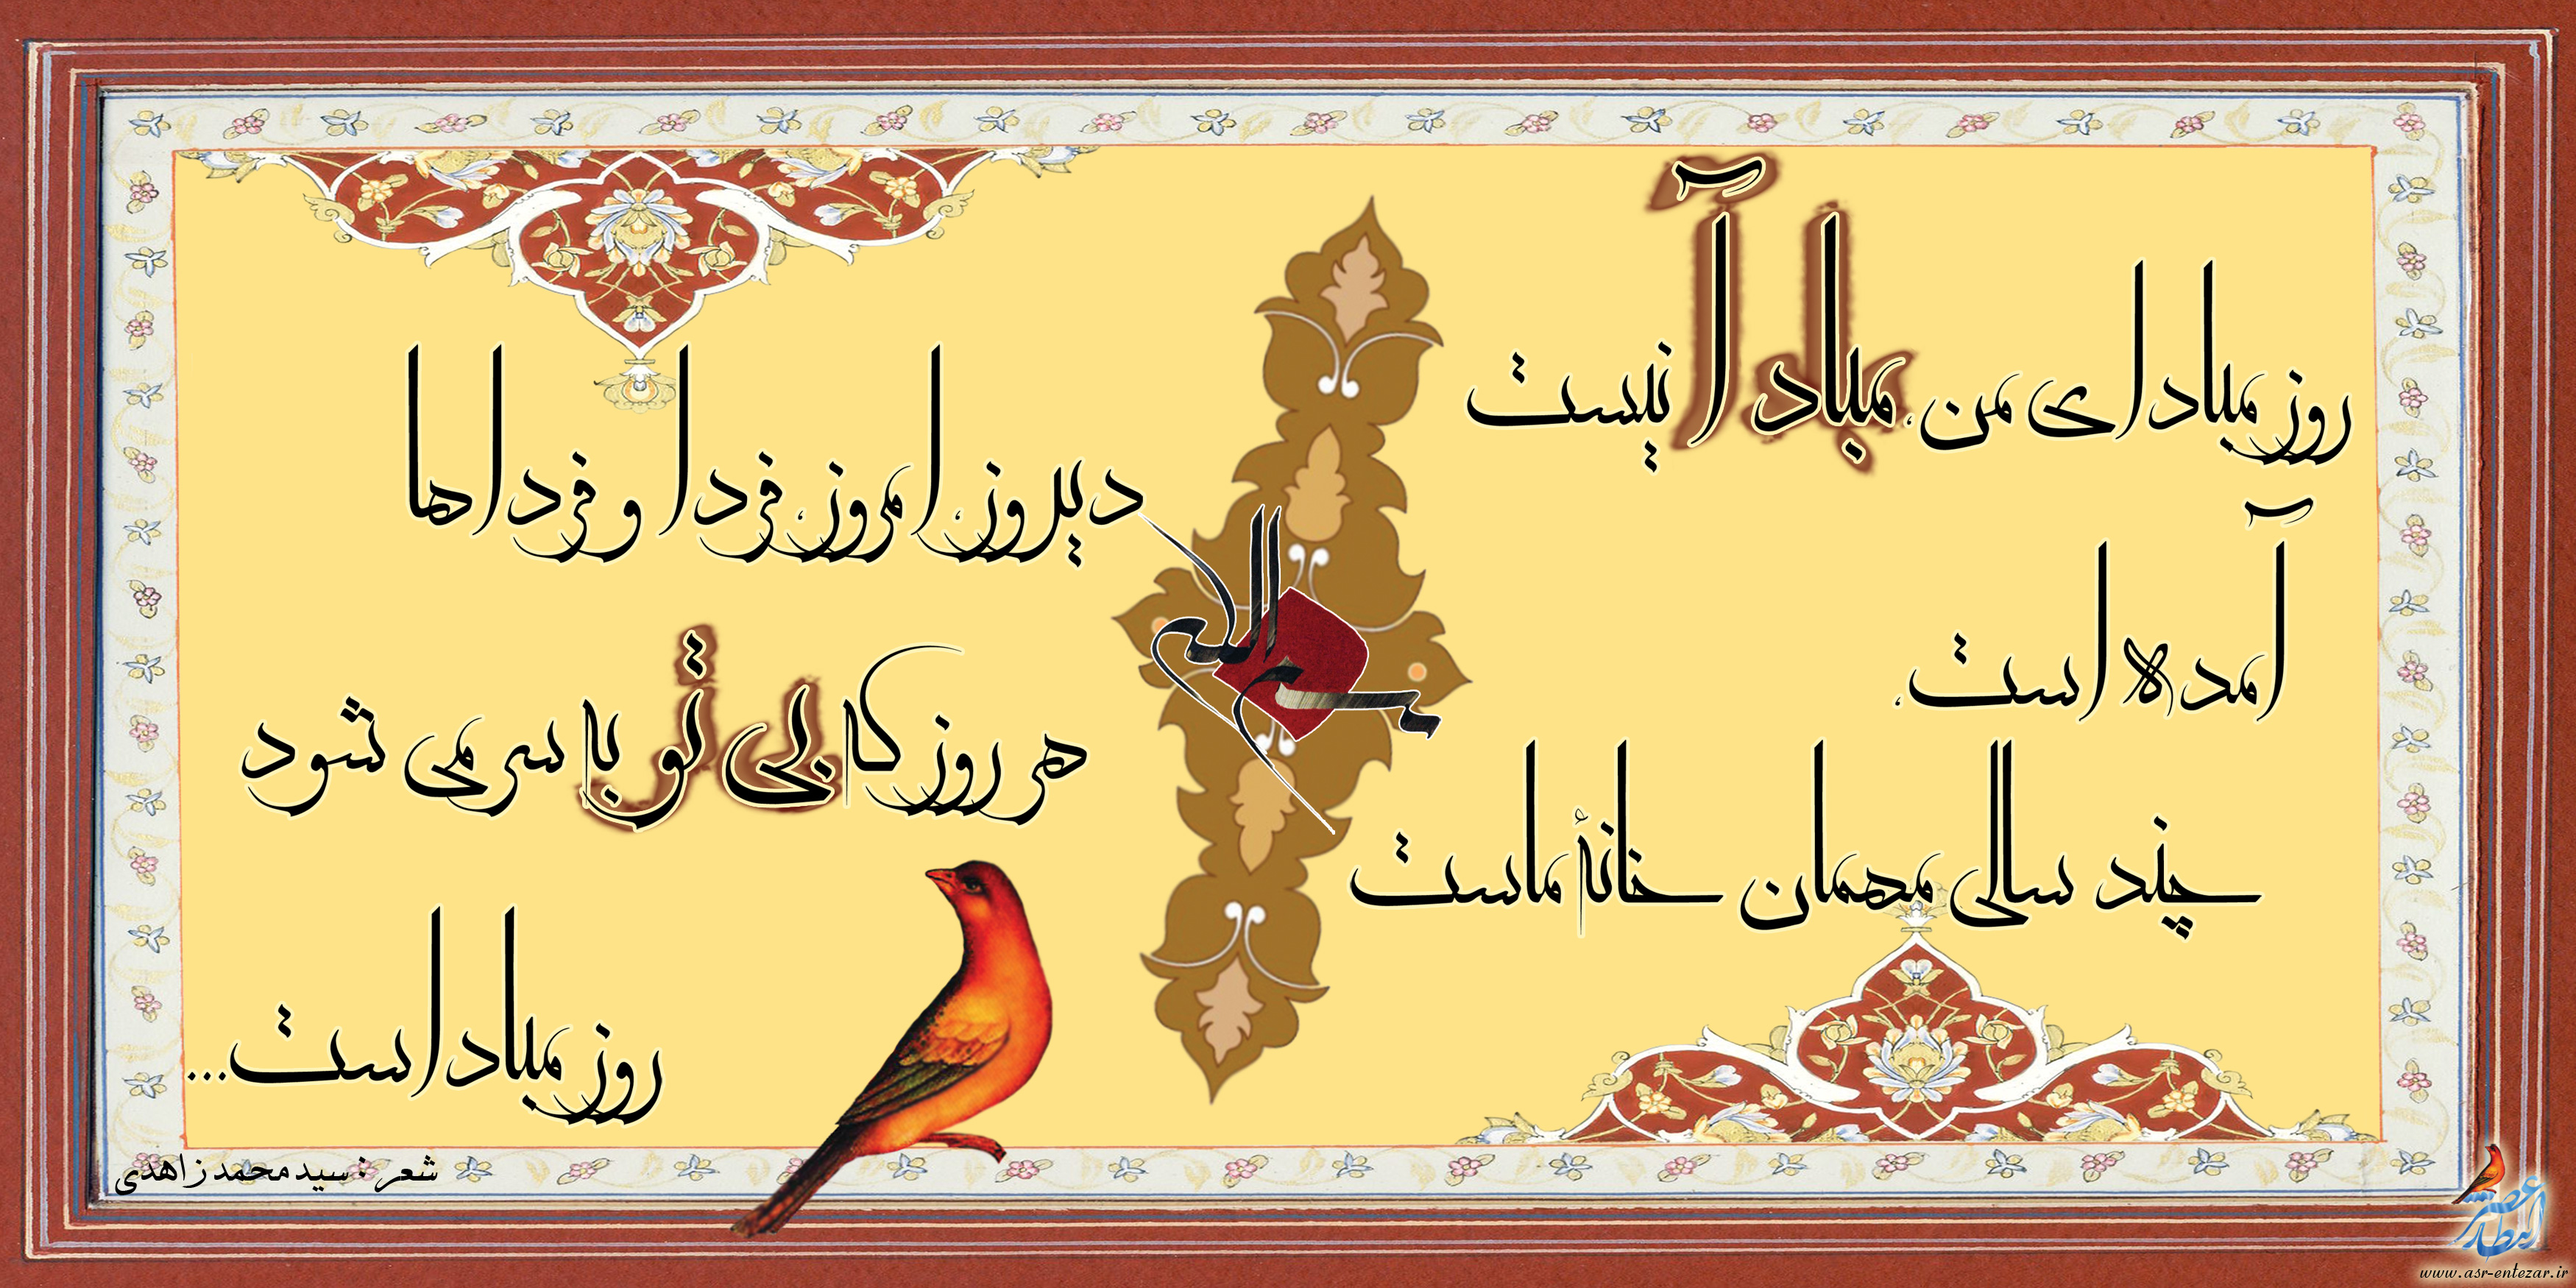 روز مباد ای من، مباد آ نیست
آمده است،
چند سالی مهمان خانهٔ ماست
بسم الله
دیروز، امروز، فردا و فرداها
هر روز که بی تو به سر می شود
روز مباد است...
شعر : سید محمد زاهدی
عصر انتظار
www.asr-entezar.ir